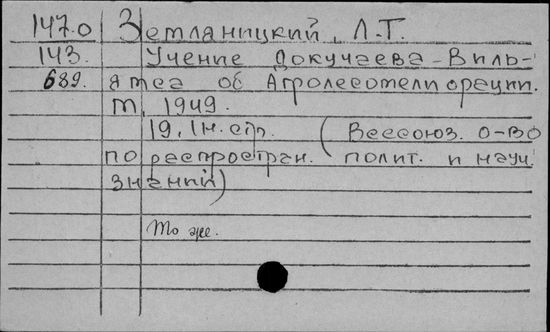 147.0 Земляницкий, Л.Т.
143. Учение Докучаева-Виль-
689. ямса об Агролесомелиорации.
М, 1949.
19, 1н. стр. (Всесоюз. о-во
по распростран. полит. и науч.
знаний)
То же.